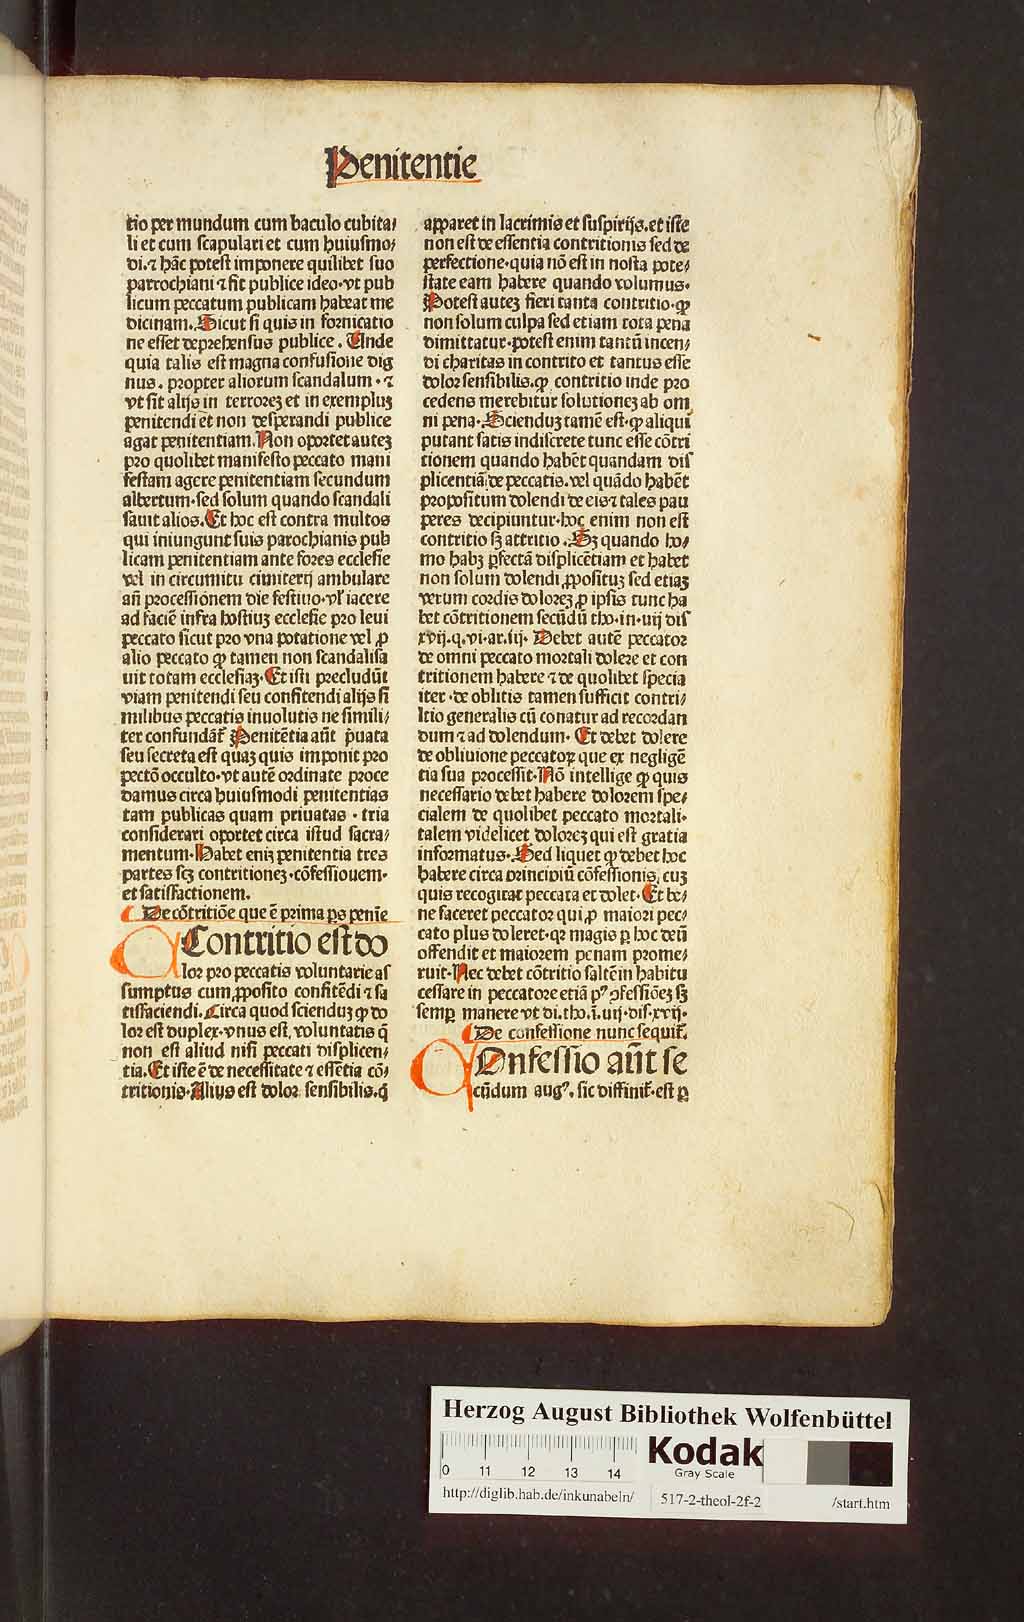 Penitentie
tio per mundum cum baculo cubita⸗
li et cum scapulari et cum huiusmo⸗
di.⁊ hãc potest imponere quilibet suo
parrochiani ⁊ fit publice ideo·vt pub
licum peccatum publicam habeat me
dicinam. Sicut si quis in fornicatio
ne esset deprehensus publice. Unde
quia talis est magna confusione dig
nus. propter aliorum scandalum·⁊
vt sit alijs in terroreꝫ et in exempluꝫ
penitendi et non desperandi publice
agat penitentiam. Non oportet auteꝫ
pro quolibet manifesto peccato mani
festam agere penitentiam secundum
albertum·sed solum quando scandali
sauit alios. Et hoc est contra multos
qui iniungunt suis parochianis pub
licam penitentiam ante fores ecclesie
vel in circumitu cimiterij ambulare
añ processionem die festiuo·vl' iacere
ad faciẽ infra hostiuꝫ ecclesie pro leui
peccato sicut pro vna potatione vel ꝓ
alio peccato ꝙ tamen non scandalisa
uit totam ecclesiaꝫ. Et isti precludũt
viam penitendi seu confitendi alijs si
milibus peccatis inuolutis ne simili⸗
ter confundãt᷑ Penitẽtia aũt ṗuata
seu secreta est quaꝫ quis imponit pro
pectõ occulto·vt autẽ ordinate proce
damus circa huiusmodi penitentias
tam publicas quam priuatas·tria
considerari oportet circa istud sacra⸗
mentum. Habet eniꝫ penitentia tres
partes scꝫ contritioneꝫ·cõfessiouem·
et satisfactionem.
De cõtritiõe que ẽ prima ꝑs penie̅
Contritio est do
lor pro peccatis voluntarie as
sumptus cum ꝓposito confitẽdi ⁊ sa
tisfaciendi. Circa quod scienduꝫ ꝙ do
lor est duplex·vnus est, voluntatis q̃
non est aliud nisi peccati displicen⸗
tia. Et iste ẽ de necessitate ⁊ essẽtia cõ⸗
tritionis. Alius est doloꝛ sensibilis.q̃
apparet in lacrimis et suspirijs.et iste
non est de essentia contritionis sed de
perfectione·quia nõ est in nosta pote⸗
state eam habere quando volumus·
Potest auteꝫ fieri tanta contritio·ꝙ
non solum culpa sed etiam tota pena
dimittatur·potest enim tantũ incen⸗
di charitas in contrito et tantus esse
dolor sensibilis.ꝙ contritio inde pro
cedens merebitur solutioneꝫ ab om
ni pena·Scienduꝫ tamẽ est·ꝙ aliqui
putant satis indiscrete tunc esse cõtri
tionem quando habẽt quandam dis
plicentiã de peccatis·vel quãdo habẽt
propositum dolendi de eis ⁊ tales pau
peres decipiuntur·hoc enim non est
contritio sꝫ attritio. Sꝫ quando ho⸗
mo habꝫ ꝑfectã displicẽtiam et habet
non solum dolendi ꝓposituꝫ sed etiaꝫ
verum cordis doloreꝫ ꝓ ipsis tunc ha
bet cõtritionem secũdũ tho·in·iiij dis
xvij.q.vi·ar.iij· Debet autẽ peccator
de omni peccato mortali dolere et con
tritionem habere ⁊ de quolibet specia
iter·de oblitis tamen sufficit contri⸗
ltio generalis cũ conatur ad recordan
dum ⁊ ad dolendum· Et debet dolere
de obliuione peccatoꝝ que ex negligẽ
tia sua processit· Nõ intellige ꝙ quis
necessario debet habere dolorem spe⸗
cialem de quolibet peccato mortali·
talem videlicet doloreꝫ qui est gratia
informatus· Sed liquet ꝙ debet hoc
habere circa principiũ cõfessionis, cuꝫ
quis recogitat peccata et dolet· Et be⸗
ne faceret peccator qui ꝓ maiori pec⸗
cato plus doleret·qꝛ magis ꝑ hoc deũ
offendit et maiorem penam prome⸗
ruit· Nec debet cõtritio saltẽ in habitu
cessare in peccatore etiã pꝰ ꝯfessiõeꝫ sꝫ
semꝑ manere vt di.tho.ĩ.iiij·dis·xvij·
De confessione nunc sequit᷑.
Onfessio aũt se
cũdum augꝰ. sic diffinit᷑·est ꝑ
Herzog August Bibliothek Wolfenbüttel
0 11 12 13 14
Kodak
Gray Scale
http://diglib.hab.de/inkunabeln/
517-2-theol-2f-2
/start.htm